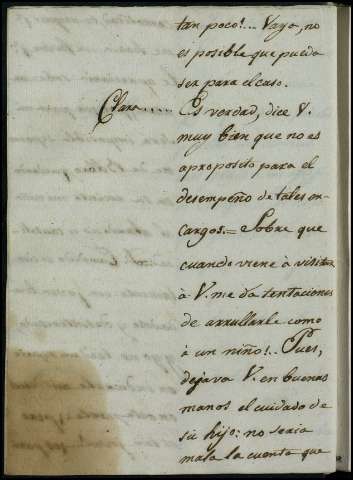 tan poco!... Vaya, no
es posible que pueda
ser para el caso.
Clara..... Es verdad, dice V.
muy bien que no es
aproposito para el
desempeño de tales en-
cargos.= Sobre que
cuando viene à visitar
à V. me da tentaciones
de arrullarle como
à un niño!.. Pues,
dejava V. en buenas
manos el cuidado de
su hijo: no seria
mala la cuenta que